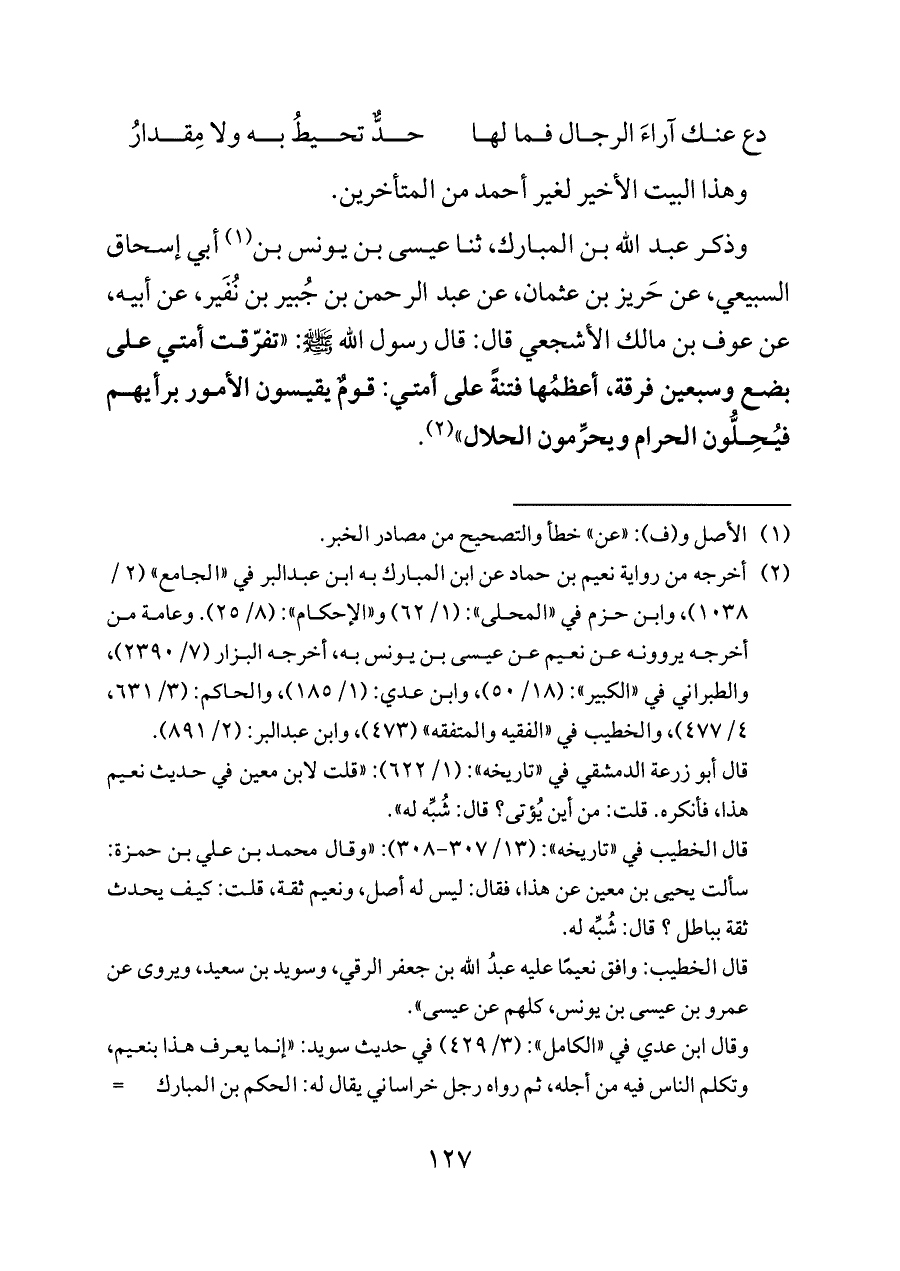 دع عنك آراءَ الرجال فما لها حدٌّ تحيطُ به ولا مِقدارُ
وهذا البيت الأخير لغير أحمد من المتأخرين.
وذكر عبد الله بن المبارك، ثنا عيسى بن يونس بن(١) أبي إسحاق
السبيعي، عن حَريز بن عثمان، عن عبد الرحمن بن جُبير بن نُفَير، عن أبيه،
عن عوف بن مالك الأشجعي قال: قال رسول الله ﷺ: «تفرّقت أمتي على
بضع وسبعين فرقة، أعظمُها فتنةً على أمتي: قومٌ يقيسون الأمور برأيهم
فيُحِلُّون الحرام ويحرِّمون الحلال»(٢).
(١) الأصل و(ف): «عن» خطأ والتصحيح من مصادر الخبر.
(٢) أخرجه من رواية نعيم بن حماد عن ابن المبارك به ابن عبدالبر في «الجامع» (٢/
١٠٣٨)، وابن حزم في «المحلى»: (١/ ٦٢) و«الإحكام»: (٨/ ٢٥). وعامة من
أخرجه يروونه عن نعيم عن عيسى بن يونس به، أخرجه البزار (٧/ ٢٣٩٠)،
والطبراني في «الكبير»: (١٨/ ٥٠)، وابن عدي: (١/ ١٨٥)، والحاكم: (٣/ ٦٣١،
٤/ ٤٧٧)، والخطيب في «الفقيه والمتفقه» (٤٧٣)، وابن عبدالبر: (٢/ ٨٩١).
قال أبو زرعة الدمشقي في «تاريخه»: (١/ ٦٢٢): «قلت لابن معين في حديث نعيم
هذا، فأنكره. قلت: من أين يُؤتى؟ قال: شُبِّه له».
قال الخطيب في «تاريخه»: (١٣/ ٣٠٧-٣٠٨): «وقال محمد بن علي بن حمزة:
سألت يحيى بن معين عن هذا، فقال: ليس له أصل، ونعيم ثقة، قلت: كيف يحدث
ثقة بباطل؟ قال: شُبِّه له.
قال الخطيب: وافق نعيمًا عليه عبدُ الله بن جعفر الرقي، وسويد بن سعيد، ويروى عن
عمرو بن عيسى بن يونس، كلهم عن عيسى».
وقال ابن عدي في «الكامل»: (٣/ ٤٢٩) في حديث سويد: «إنما يعرف هذا بنعيم،
وتكلم الناس فيه من أجله، ثم رواه رجل خراساني يقال له: الحكم بن المبارك =
١٢٧